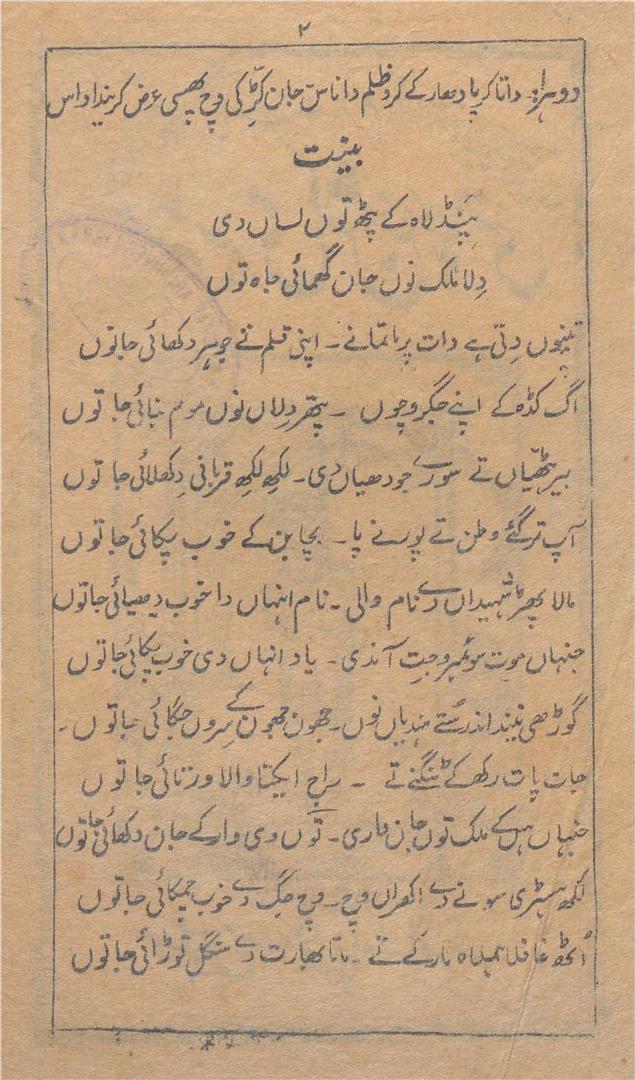 ۲
دوہرا:۔ داتا کرپا دھار کے کرو ظلم دا ناس جان کڑِکی وچ پھسی عرض کریندا داس
بینت
پنڈ لاہ کے پٹھ توں لساں دی
دِلا ملک نوں جان گھمائی جاہ توں
تینوں دِتی ہے دات پرماتمانے۔ اپنی قلم تے جوہر دکھائی جا توں
اگ کڈھ کے اپنے جگر وچوں ۔ پتھر دِلاں نوں موم بنائی جا توں
بیرٹھیاں تے سورے جودھیاں دی۔ لکھ لکھ قربانی دِکھلائی جا توں
آپ ترگئے وطن تے پورنے پا۔ بچا بن کے خوب پکائی جا توں
مالا پھڑ شہیداں دے نام والی ۔ نام انہاں دا خوب دھیائی جا توں
جنہاں موت سوئمبر وچت آندی۔ یاد انہاں دی خوب پکائی جا توں
گوڑھی نیند اندر سُتے ہندیاں نوں۔ جھون جھون کے سِروں جگائی جا توں۔
جات پات رکھ کے ٹنگنے تے ۔ راج ایکتا والا ورتائی جا توں
جنہاں ہس کے ملک توں جان واری۔ توں وی وار کے جان دکھائی جا توں
لکھ ہسٹری سونے دے اکھراں وچ۔ وچ جگ دے خوب چمکائی جا توں
اُٹھ غافلا ہمبلاہ مار کے تے ۔ ماتا بھارت دے سنگل توڑائی جا توں